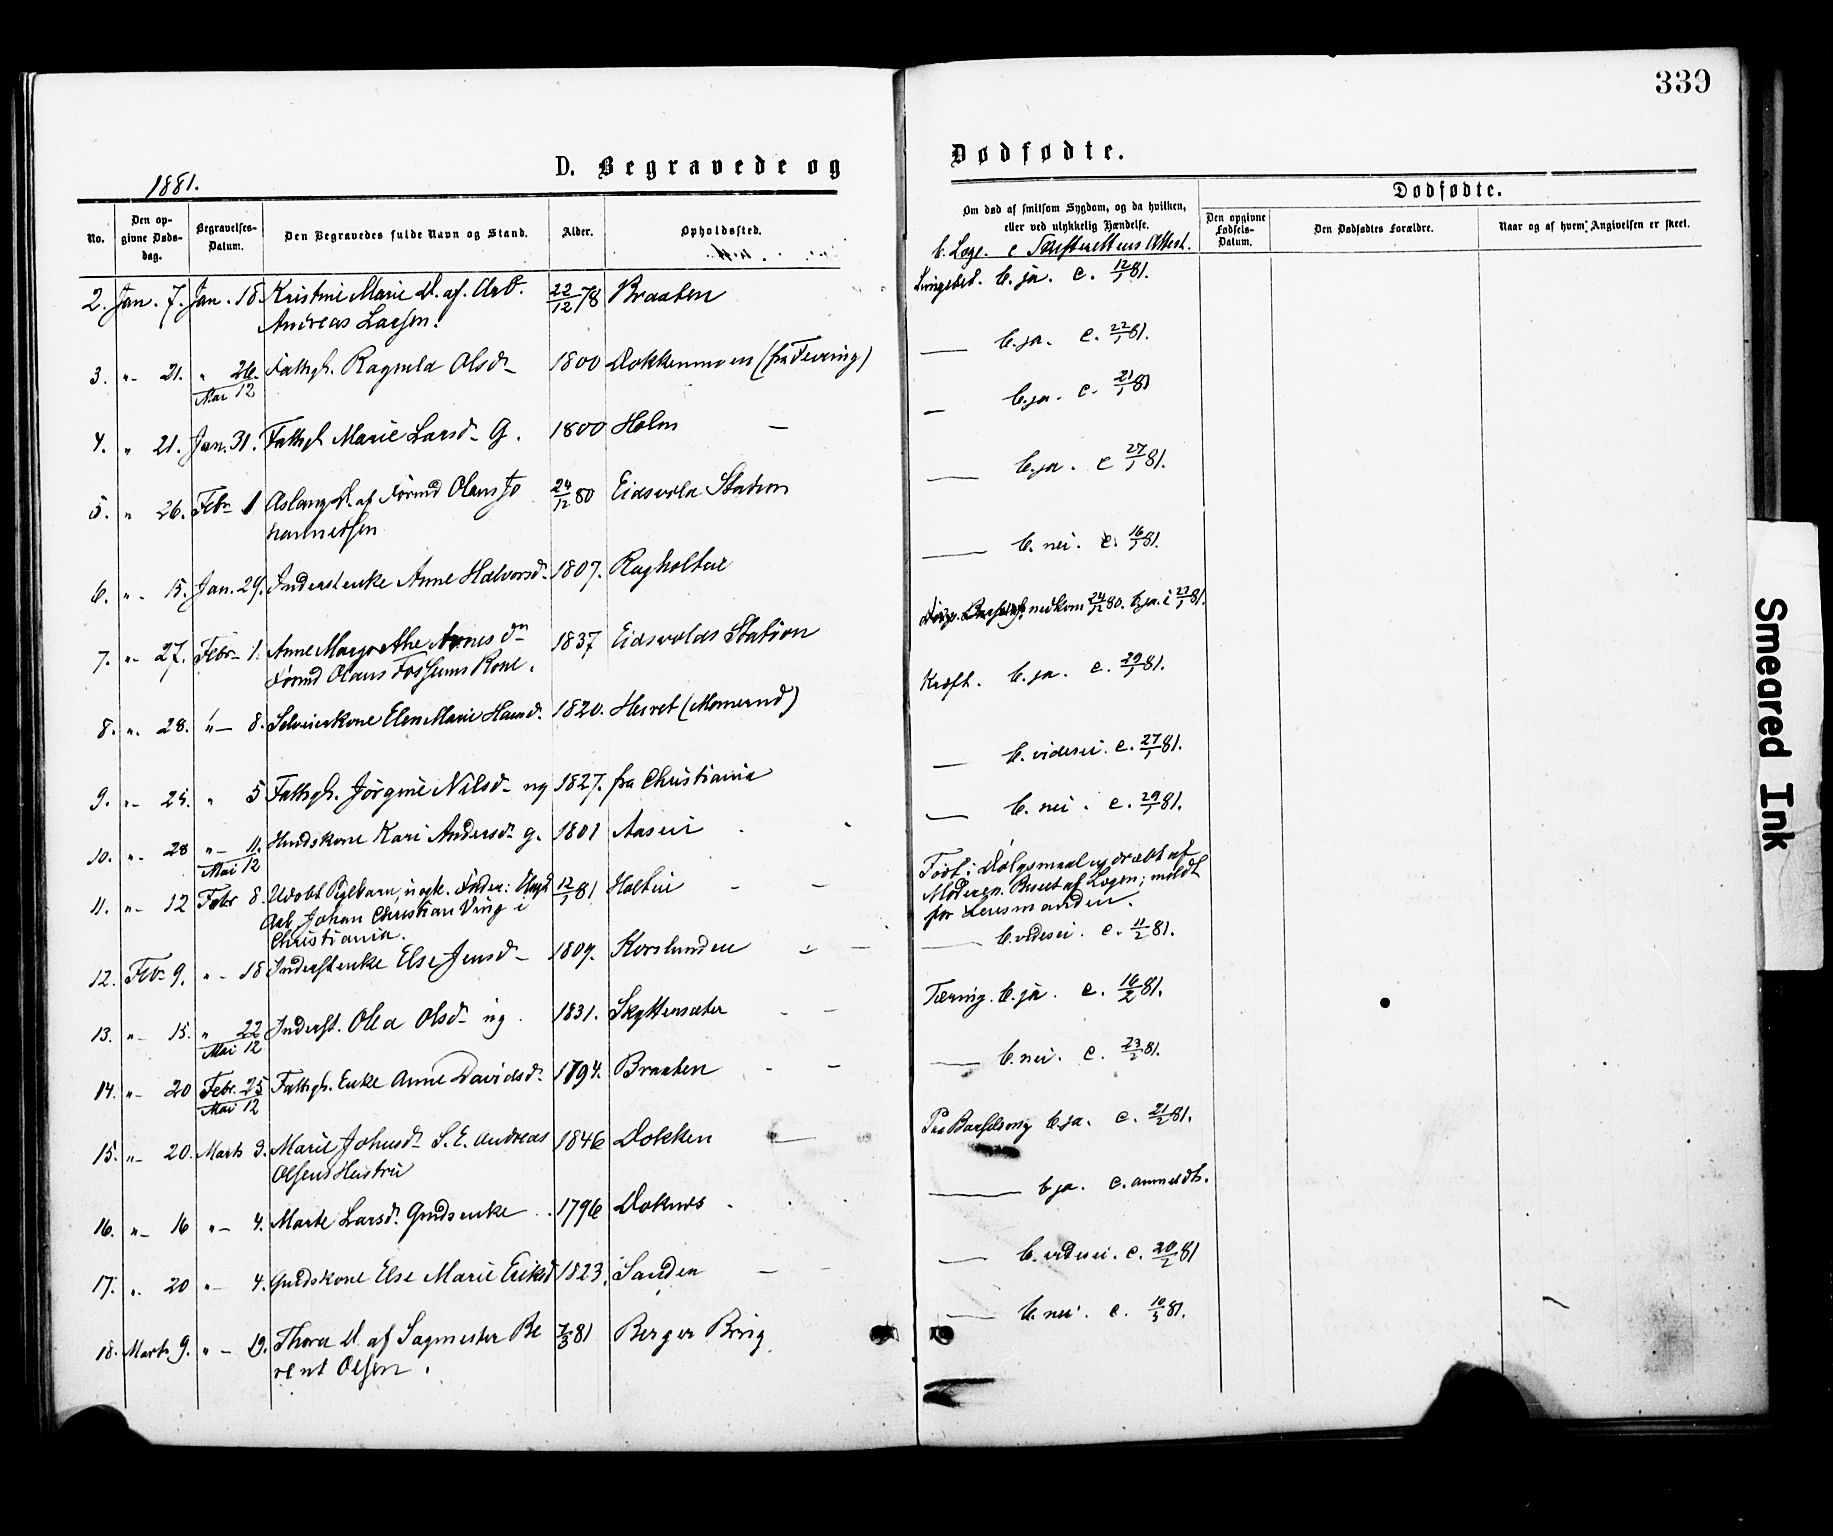 339
1881.
D. Begravede og
Dødfødte.
No.
Den opgivne Døds-dag.
Begravelses-Datum.
Den Begravedes fulde Navn og Stand.
Alder.
Opholdssted.
Om død af smitsom Sygdom, og da hvilken, eller ved ulykkelig Hændelse.
b. Læge. c Skifterettens Attest.
Dødfødte.
Den opgivne Fødsels-Datum.
Den Dødfødtes Forældre.
Naar og af hvem Angivelsen er skeet.
2. Jan. 7. Jan. 18 Kristine Marie D. af Arb. 22/12 78 Braaten b. ja. c. 12/1 81.
Andreas Larsen.
3. "- 21. " 26. Fattigl. Ragnild Olsd. 1800 Dokkenmoen (fra Feiring) — b. ja. c. 22/1 81.
Mai 12
4. " 21. Jan. 31. Fattigl. Marie Larsd. g. 1800 Holm — — b. ja. c. 21/1 81
5. " 26. Febr. 1 Aslaug D. af Formd Olaus Jo 24/12 80 Eidsvold Station — b. ja. c 27/1 81.
hannessen
6. "- 15. Jan. 29. Inderstenke Anne Halvorsd. 1807. Rugholteie — b. nei. c. 16/1 81.
7. "- 27. Febr. 1. Anne Margrethe Arnesdn 1837 Eidsvolds Station nedkom 24/12 80. b. ja. c 27/1 81.
Formd Olaus Fossums Kone.
8. "- 28. "- 8. Selveierkone Elen Marie Hansd. 1820. Hesvet Kræft. b. ja. c. 29/1 81.
9. "- 25. " 5 Fattigl. Jørgine Nilsd. ug 1827. fra Christiania — b. vides ei. c. 27/1 81.
10. "- 28 "- 11. Husdskone Kari Andersd. g. 1801 Aaseie — b. nei. c. 29/1 81.
Mai 12
11. "- 12 Febr 8. Udøbt Pigebarn, uægte. Fader: Ungk 12/1 81 Holteie Født i Dølgsmaal og dræbt af
Arb. Johan Christian Ving i Moderen. Beseet af Lægen; meldt
Christiania. for Lensmanden.
12. Febr 9. "- 18 Inderstenke Else Jensd. 1809. Korslunden — b. vides ei. c. 11/2 81.
13. "- 15. " 22 Inderst. Olea Olsd. ug. 1831. Skyttesæter Tæring. b. ja. c. 16/2 81.
Mai 12
14. "- 20 Febr. 25 Fattigl. Enke Anne Davidsd. 1794. Braaten — b. nei. c. 23/2 81.
Mai 12
15. "- 20. Marts 3. Marie Johnsd. S. E. Andreas 1846 Dokken Paa Barselseng b. ja. c. 21/2 81.
Olsens Hustru
16. "- 16 "- 4. Marte Larsd. Grdsenke 1796 Doknes — b ja. c. anmeldt.
17. "- 20 "- 4. Grdskone Else Marie Eriksd 1823. Sanden — b. vides ei. c. 20/2 81
18. Marts 9. "- 19. Thora D. af Sagmester Be 7/3 81 Berger Brug — b. nei. c. 10/3 81.
rent Olsen.
Smeared Ink